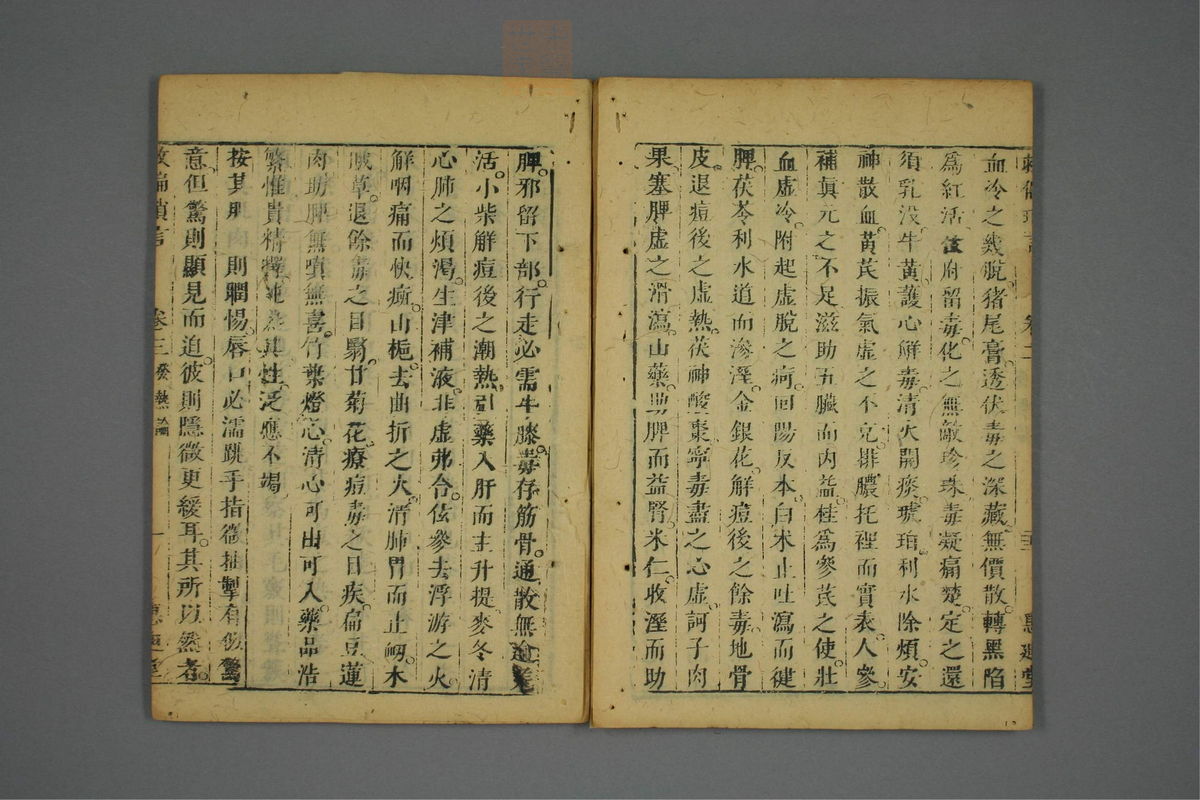 血冷之幾脫猪尾膏透伏毒之深藏無價散轉黑陷
為紅活府留毒化之無敵珍珠毒凝痛楚定之還
須乳沒牛黃護心解毒清火開痰琥珀利水除煩安
神散血黃芪振氣虛之不克排膿托裡而實表人參
補眞元之不足滋助五臟而內益桂為參芪之使壯
血虛冷附起虛脫之疴回陽反本白术止吐瀉而健
脾茯苓利水道而滲溼金銀花解痘後之餘毒地骨
皮退痘後之虛熱茯神酸棗寧毒盡之心虛訶子肉
果塞脾虛之滑瀉山藥助脾而益腎米仁收溼而助
脾邪留下部行走必需牛膝毒存筋骨通散無逾羌
活小柴解痘後之潮熱引藥入肝而主升提麥冬清
心肺之煩渴生津補液非虛弗合玄參去浮游之火
解咽痛而快癍山梔去曲折之火清肺胃而止衂木
賊草退餘毒之目翳甘菊花療痘毒之目疾扁豆蓮
肉助脾無嗔無喜竹葉燈心清心可出可入藥品浩
繁惟貴精擇其性泛應不竭
按其肌肉則瞤惕唇口必濡跳手指微抽掣有似驚
意但驚則顯見而迫彼則隱微更緩耳其所以然者
卷三 發熱 一